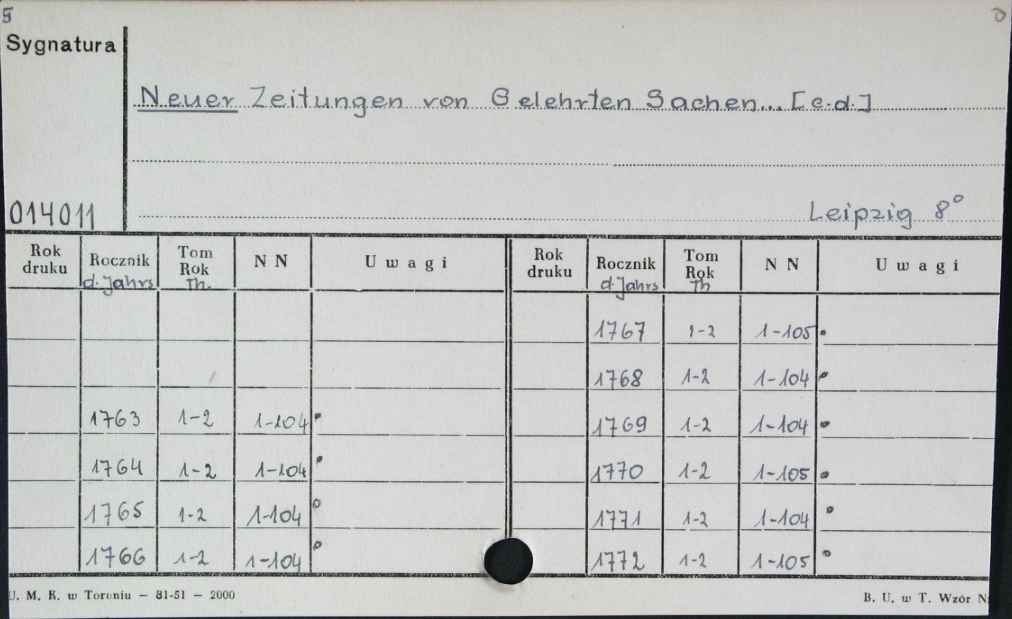 5
Sygnatura
Neuer Zeitungen von Gelehrten Sachen... [c.d.]
014011
Leipzig 8°
Rok druku Rocznik d. Jahrs Tom Rok Th. N N Uwagi Rok druku Rocznik d. Jahrs Tom Rok Th N N Uwagi
1767 1-2 1-105
1768 1-2 1-104
1763 1-2 1-104 1769 1-2 1-104
1764 1-2 1-104 1770 1-2 1-105
1765 1-2 1-104 1771 1-2 1-104
1766 1-2 1-104 1772 1-2 1-105
U. M. K. w Toruniu — 81-51 — 2000 B. U. w T. Wzór